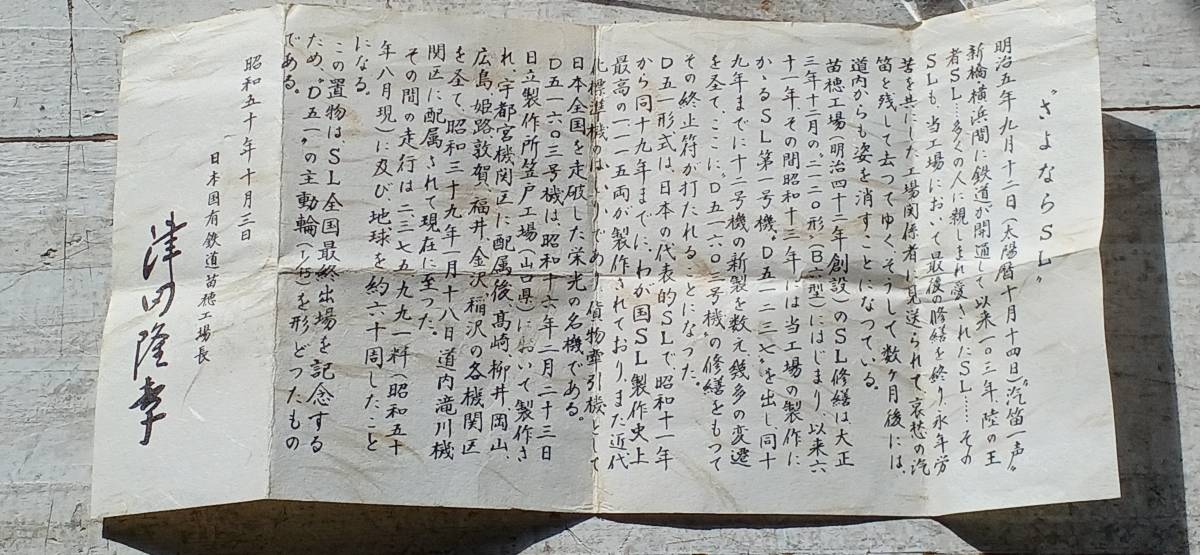 〝さよならSL〟
明治五年九月十二日(太陽暦十月十四日)〝汽笛一声〟
新橋横浜間に鉄道が開通して以来一〇三年陸の王
者SL‥‥多くの人に親しまれ愛されたSL‥‥その
SLも、当工場において最後の修繕を終り、永年労
苦を共にした工場関係者に見送られて、哀愁の汽
笛を残して去つてゆく、そうして数ヶ月後には、
道内からも姿を消すことになつている。
苗穂工場(明治四十二年創設)のSL修繕は大正
三年十二月の〝一一二〇形〟(B6型)にはじまり、以来六
十一年、その間昭和十三年には当工場の製作に
かゝるSL第一号機〝D五一二三七〟を出し、同十
九年までに十二号機の新製を数え幾多の変遷
を圣て、ここに〝D五一六〇三号機〟の修繕をもつて
その終止符が打たれることになつた。
D五一形式は、日本の代表的SLで、昭和十一年
から同十九年までに、わが国SL製作史上
最高の一一一五両が製作されており、また近代
化標準機のはしりであり、貨物牽引機として
日本全国を走破した栄光の名機である。
D五一六〇三号機は昭和十六年二月二十三日
日立製作所笠戸工場(山口県)において製作さ
れ、宇都宮機関区に配属後、高崎、柳井、岡山、
広島、姫路、敦賀、福井、金沢、稲沢の各機関区
を圣て、昭和三十九年一月十八日道内滝川機
関区に配属されて現在に至つた。
その間の走行は二、三七五九九一粁(昭和五十
年八月現)に及び、地球を約六十周したこと
になる。
この置物はSL全国最終出場を記念する
ため、〝D五一〟の主動輪(1/15)を形どつたもの
である。
昭和五十年十月三日
日本国有鉄道苗穂工場長
津田隆幸